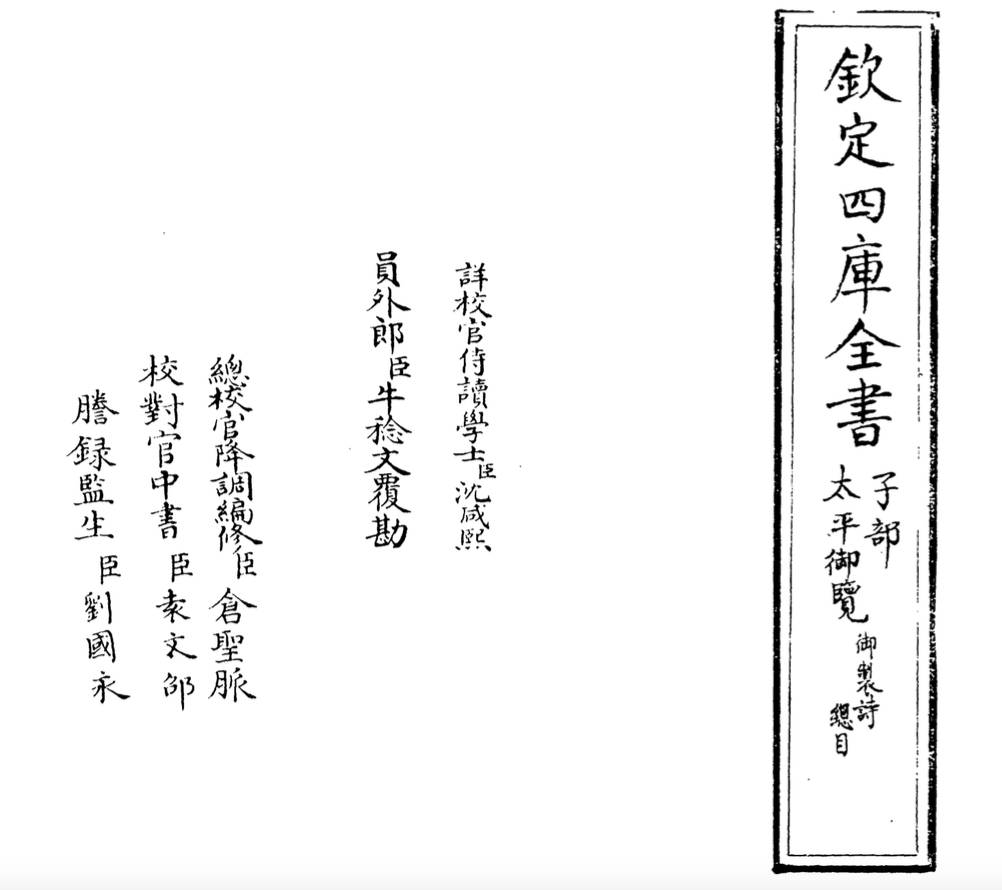 欽定四庫全書
子部
太平御覽
御製詩
總目
詳校官侍讀學士臣沈咸熙
員外郎臣牛稔文覆勘
總校官降調編修臣倉聖脈
校對官中書臣袁文邵
謄録監生臣劉國永